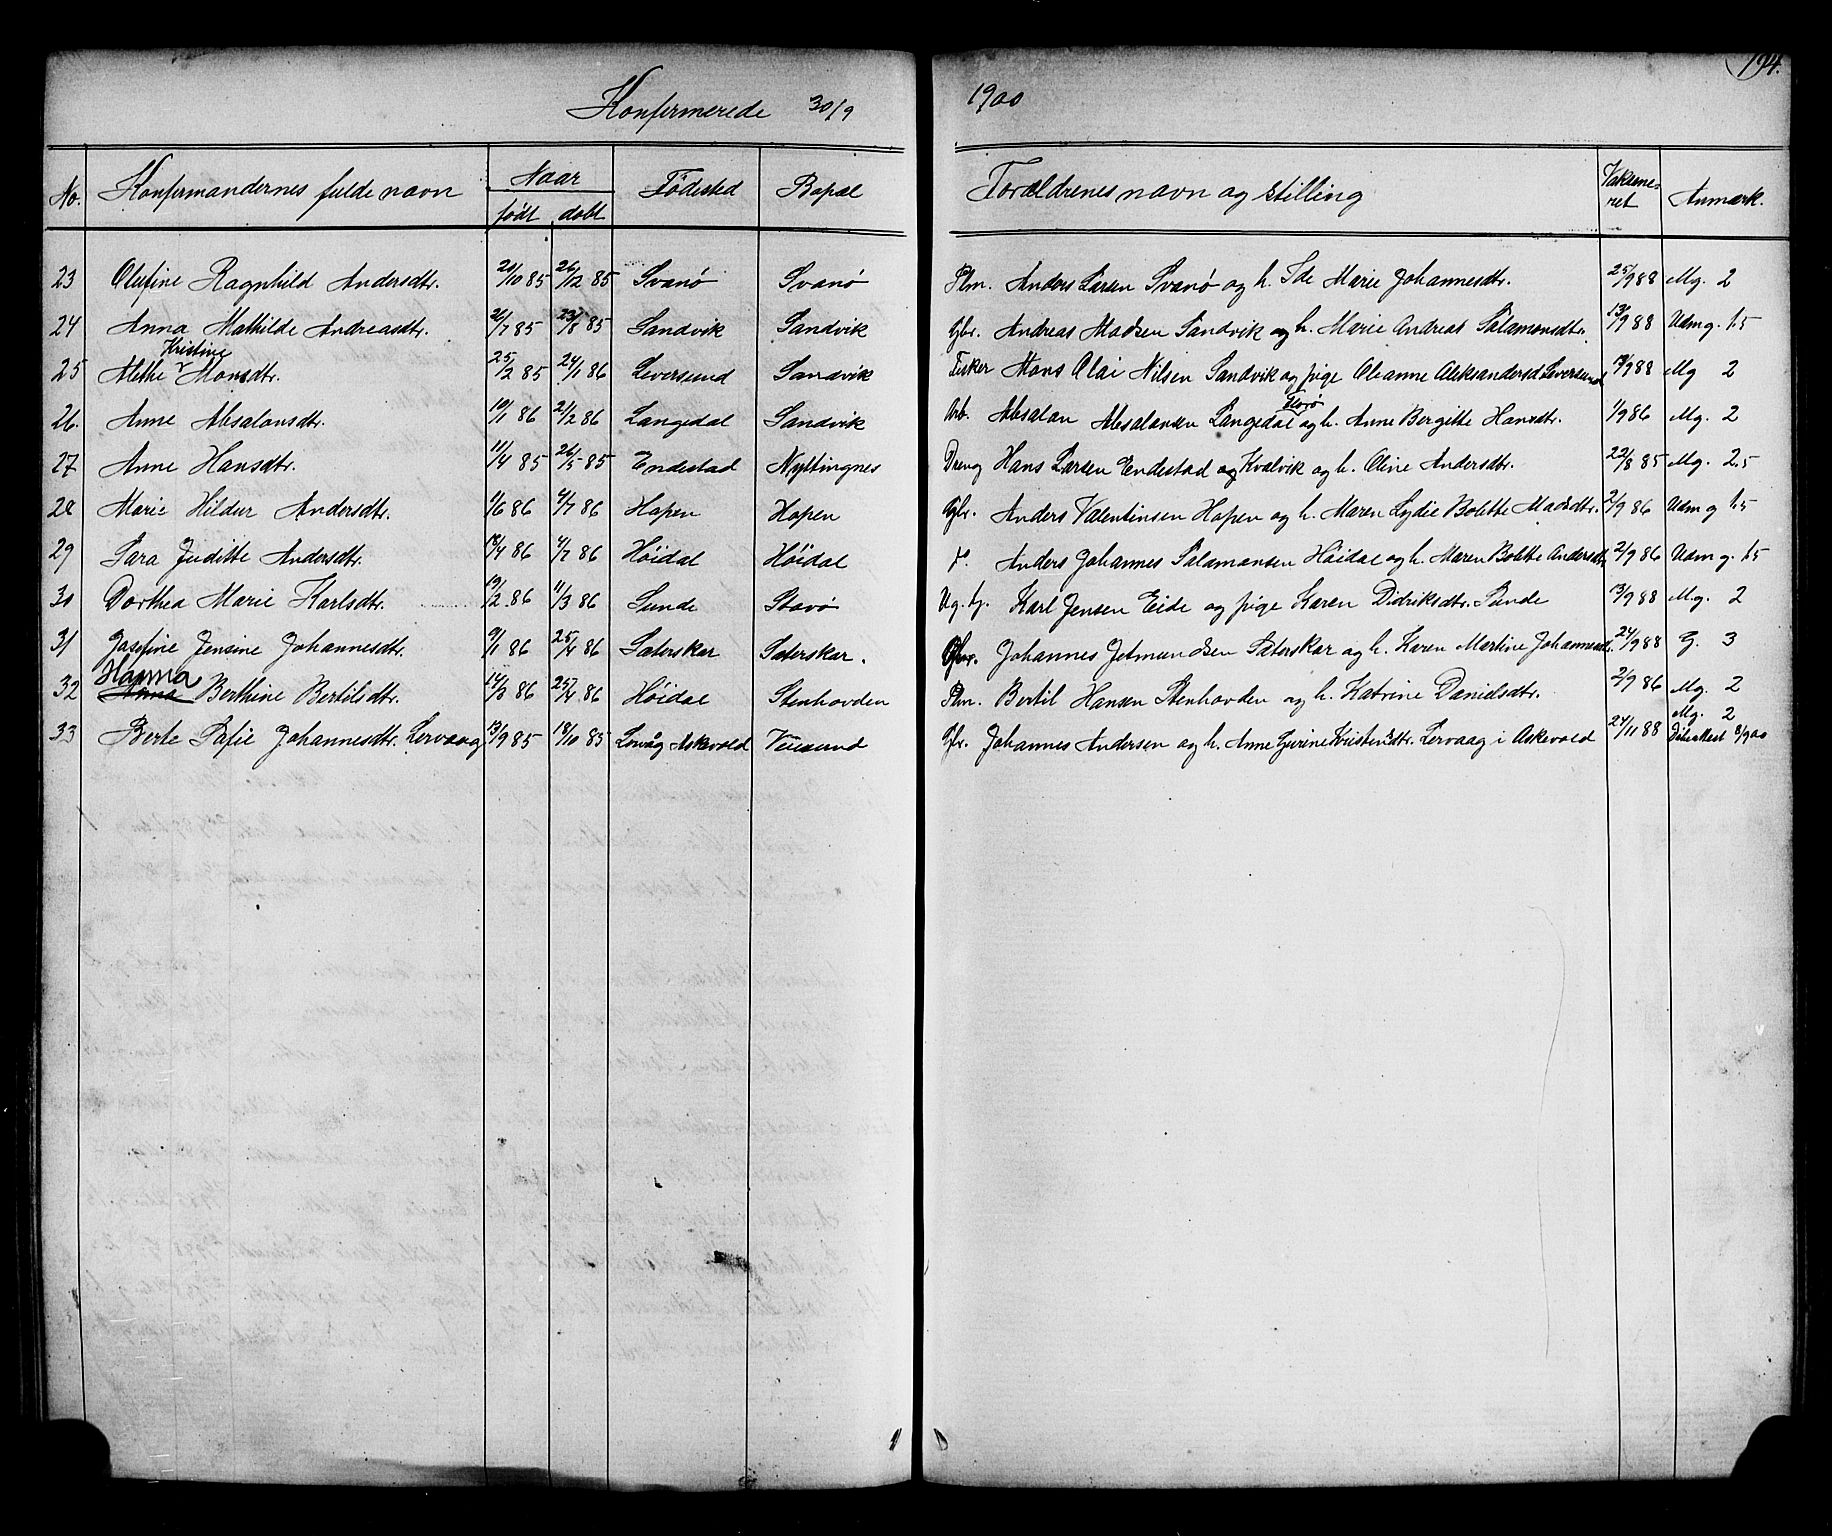 194.
Konfermerede 30/9 1900
No. Konfermandernes fulde navn Naar født døbt Fødested Bopæl Forældrenes navn og stilling Vaksene- ret Anmærk.
23 Olufine Ragnhild Andersdtr. 21/10 85 26/12 85 Svanø Svanø Plm. Anders Larsen Svanø og h. Ide Marie Johannesdtr. 25/9 88 Mg. 2
24 Anna Mathilde Andreasdtr. 2/7 85 23/8 85 Sandvik Sandvik Gbr. Andreas Madsen Sandvik og h. Marie Andrea Salamonsdtr. 13/9 88 Udm g. 1.5
25 Alethe Kristine Monsdtr. 25/2 85 24/1 86 Leversund Sandvik Fisker Mons Olai Nilsen Sandvik og pige Oleanne Aleksandersd Leversund 88 Mg 2
26. Anne Absalonsdtr. 10/1 86 21/2 86 Langedal Sandvik Arb. Absalon Absalonsen Langedal og h. Anne Bergitte Hansdtr. 1/9 86 Mg. 2
27 Anne Hansdtr. 11/4 85 26/5 85 Endestad Nyttingnes Dreng Hans Larsen Endestad og Kvalvik og h. Oline Andersdtr. 22/8 85 Mg. 2.5
28 Marie Hildur Andersdtr. 1/6 86 4/7 86 Hopen Hopen Gbr. Anders Valentinsen Hopen og h. Maren Lydie Bolette Madsdtr. 2/9 86 Udm g 1.5
29 Sara Juditte Andersdtr. 13/4 86 4/7 86 Høidal Høidal Anders Johannes Salamonsen Høidal og h. Maren Bolette Andersdtr 2/9 86 Udm g. 1.5
30 Dorthea Marie Karlsdtr. 19/2 86 11/3 86 Sunde Stavø Ug. g. Karl Jensen Eide og pige Karen Didriksdtr. Sunde 13/9 88 Mg. 2
31 Josefine Jensine Johannesdtr. 9/1 86 25/4 86 Sæterskar Sæterskar. Gbr. Johannes Jetmundsen Sæterskar og h. Karen Martine Johannesdtr. 24/9 88 G. 3
32 Hanna Berthine Bertilsdtr. 14/3 86 25/4 86 Høidal Stenhovden Plm. Bertil Hansen Stenhovden og h. Katrine Danielsdtr. 2/9 86 Mg. 2
33 Berte Sofie Johannesdtr. Lervaag 13/9 85 18/10 85 Askevold Veiesund Gbr. Johannes Andersen og h. Anne Gurine Kristensdtr. Lervaag i Askevold 24/11 88 Mg. 2 8/9 00